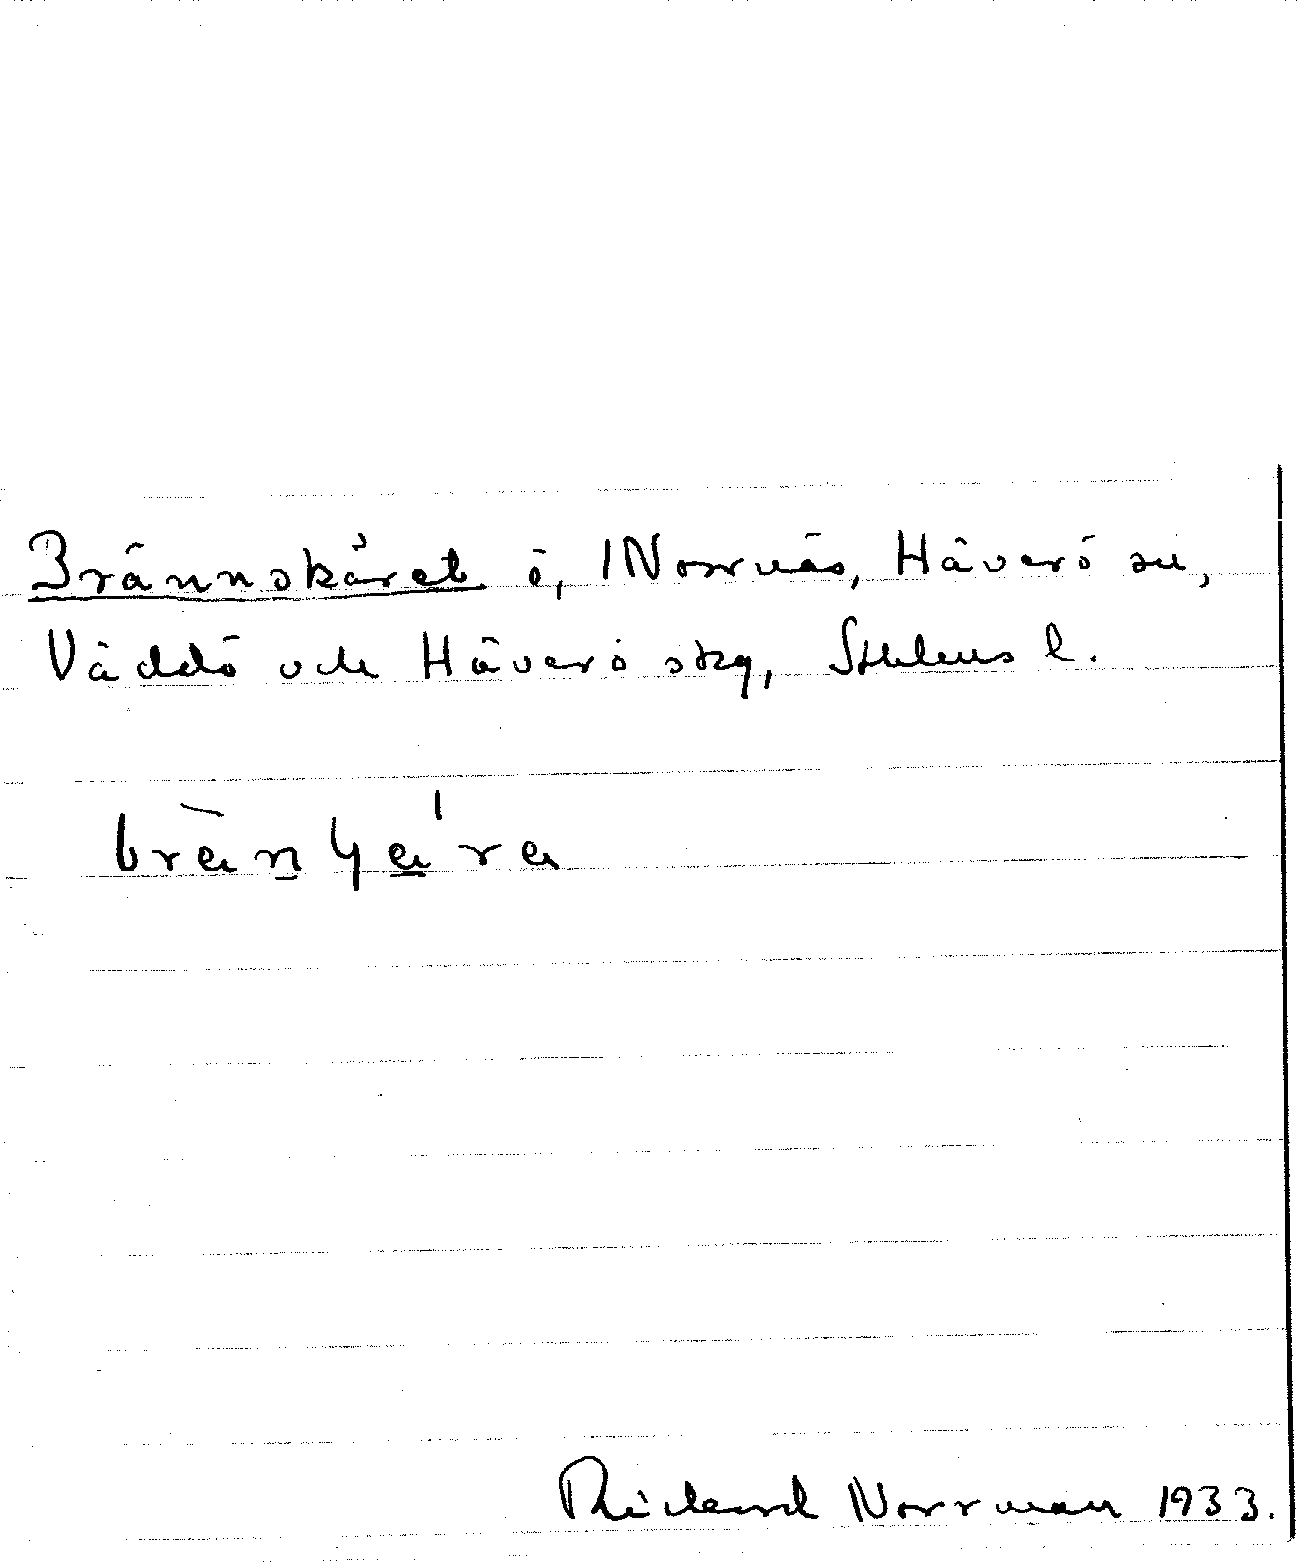 Brännskäret ö, Norrnäs, Häverö sn,
Väddö och Häverö skg, Sthlms l.
Rickard Norrman 1933.